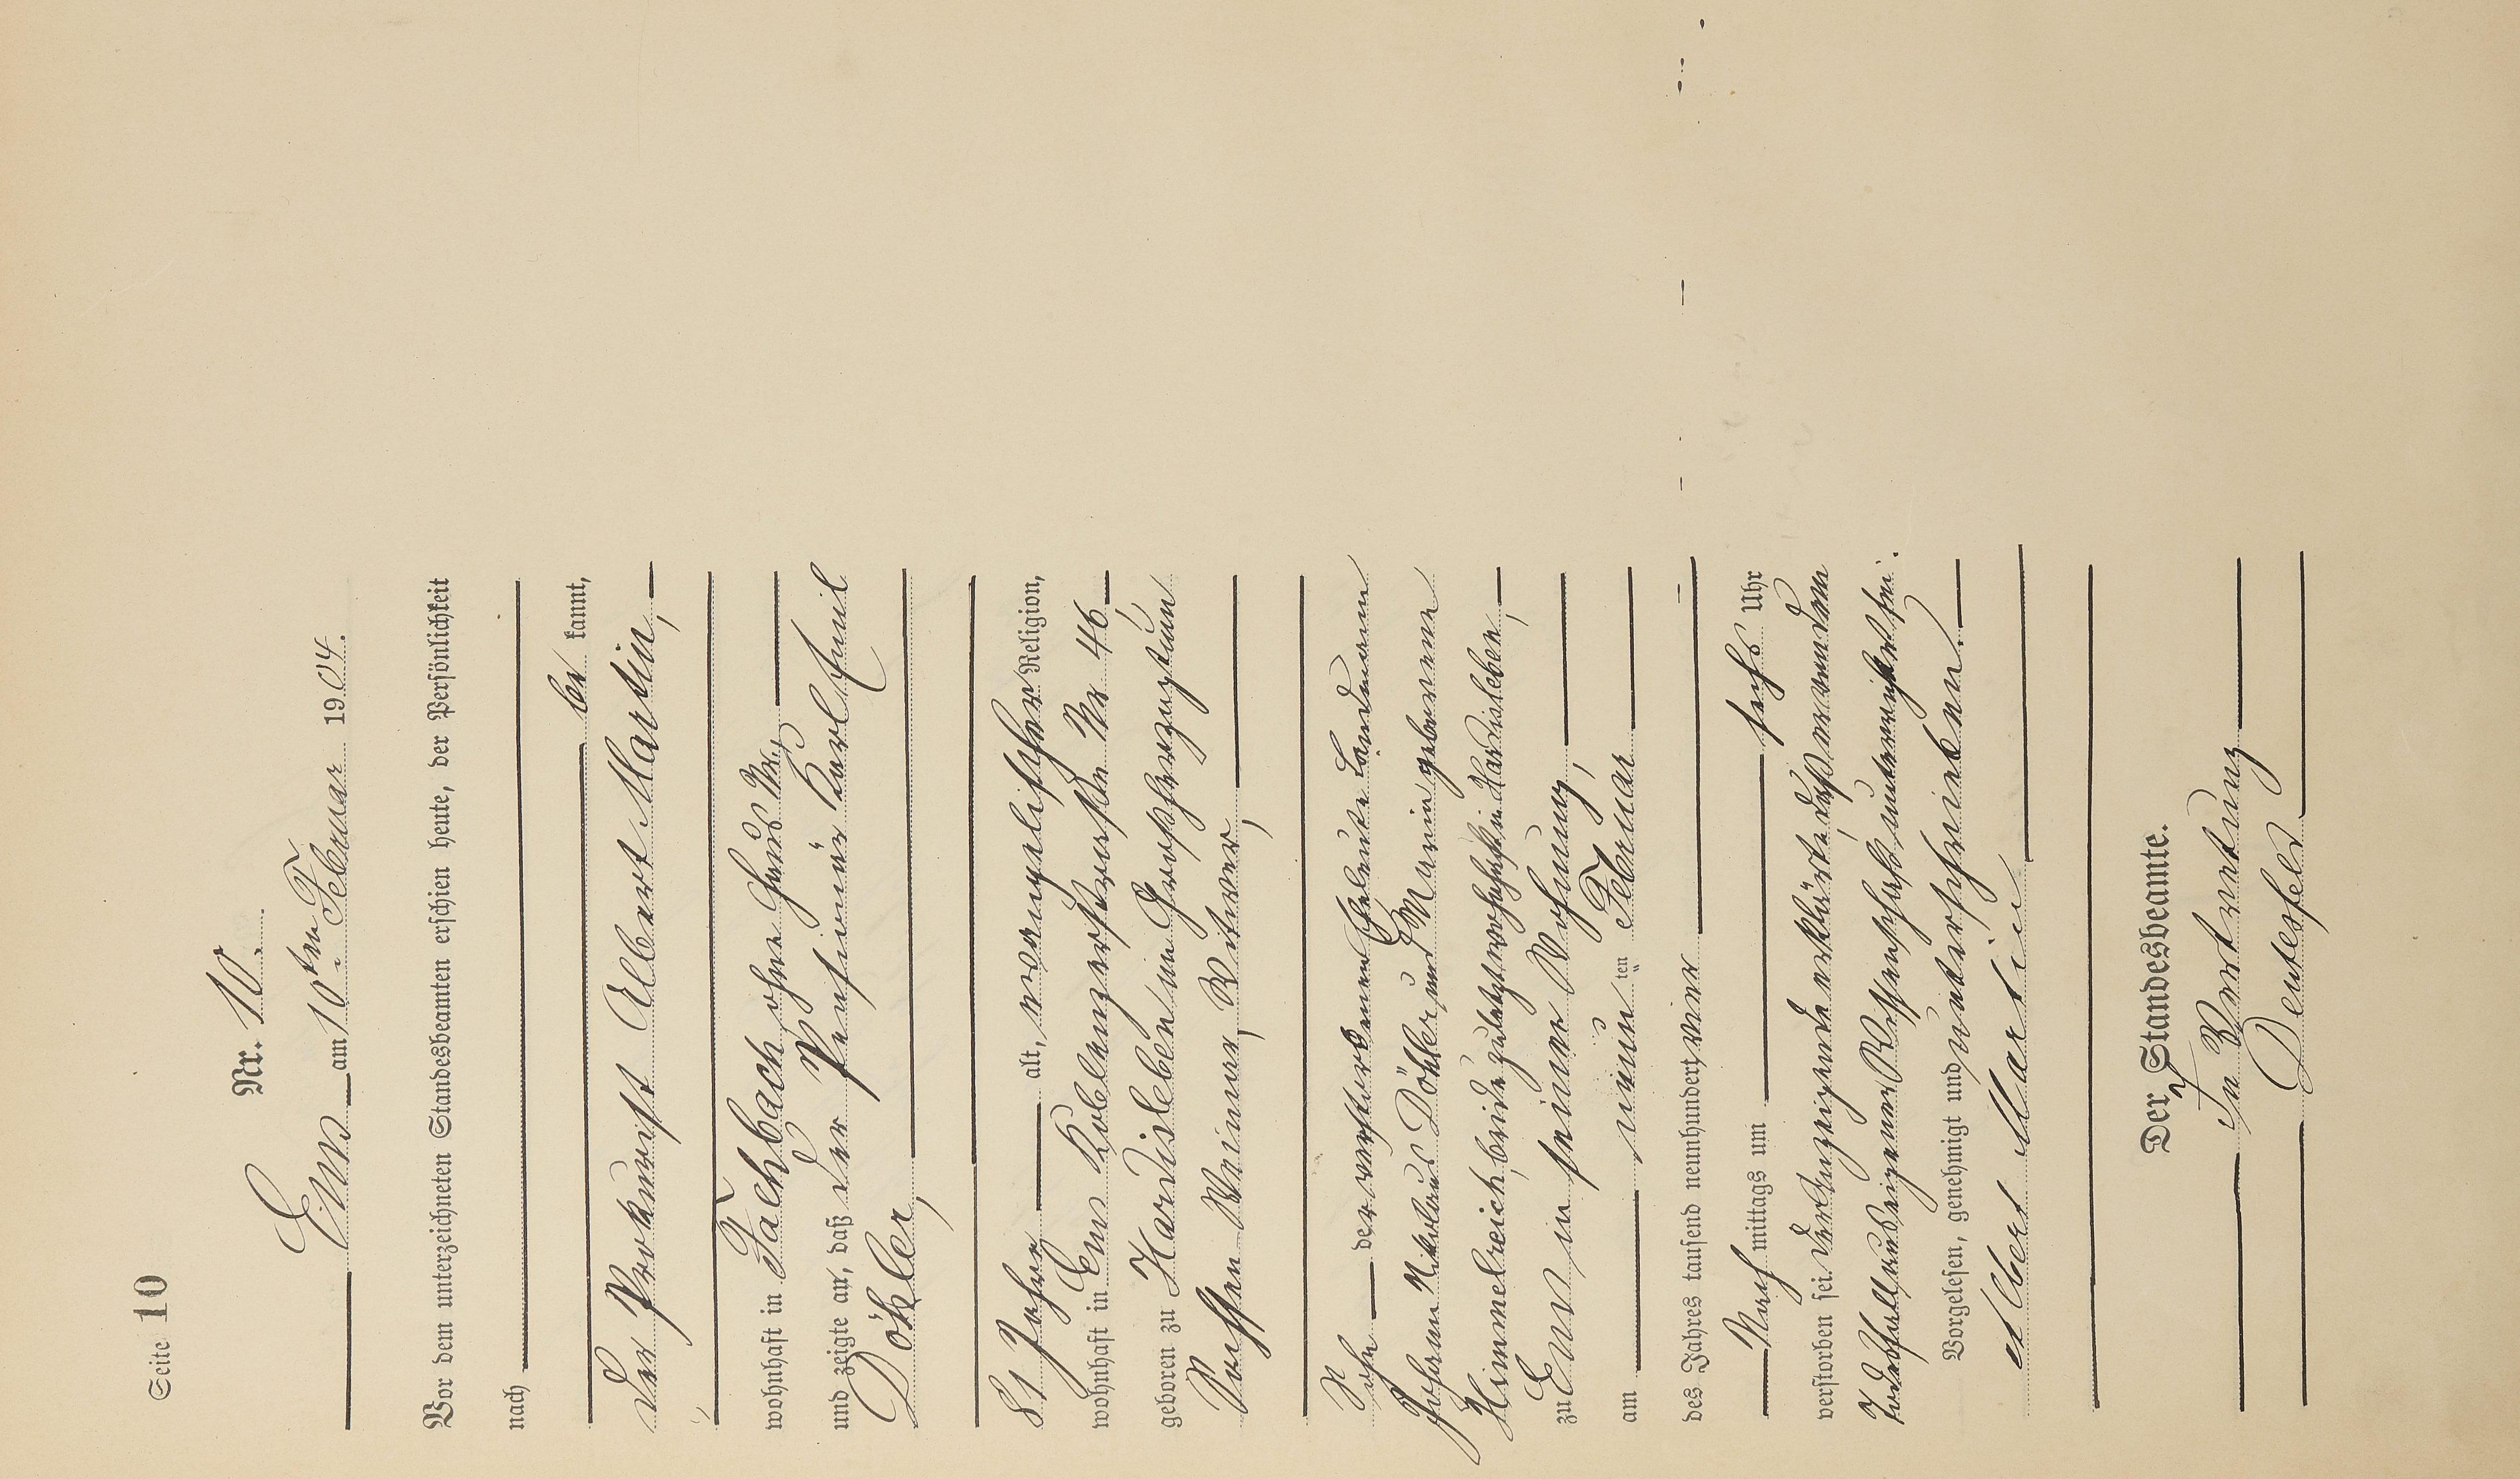 Seite 10
Nr. 10.
Ems am 10ten Februar 1904.
Vor dem unterzeichneten Standesbeamten erschien heute, der Persönlichkeit
nach
be kannt,
der Prokurist Albert Martin,
wohnhaft in Fachbach ohne Haus Nr.,
und zeigte an, daß der Pensionär Karl Emil
Döhler,
81 Jahre alt, evangelischer Religion,
wohnhaft in Ems Koblenzerstraße Nr 46,
geboren zu Hardisleben im Großherzogtum
Sachsen Weimar, Witwer,
Sohn der verstorbenen Eheleute Landmann
Johann Nikolaus Döhler und Maria geborenen
Himmelreich, beide zuletzt wohnhaft in Hardisleben,
zu Ems in seiner Wohnung,
am neun ten Februar
des Jahres tausend neunhundert vier
Nach mittags um sechs Uhr
verstorben sei. Der Anzeigende erklärte, daß er von dem
Todesfall aus eigener Wissenschaft unterrichtet sei.
Vorgelesen, genehmigt und unterschrieben.
Albert Martin
Der Standesbeamte.
In Vertretung